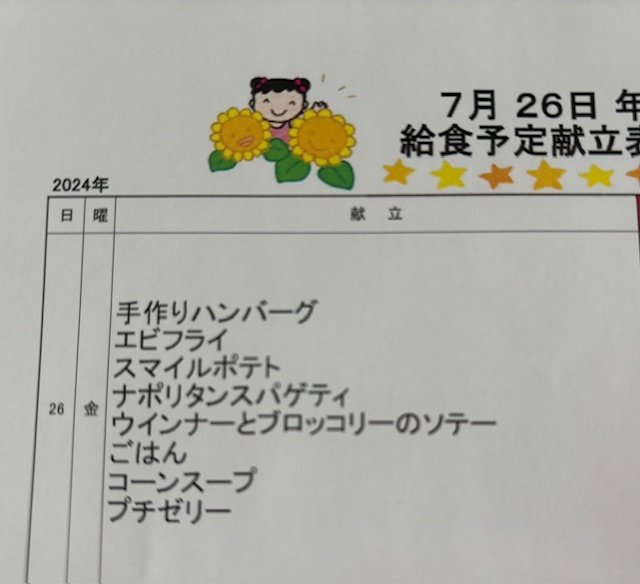 7月 26日 年
給食予定献立表
2024年
日 曜 献 立
26 金
手作りハンバーグ
エビフライ
スマイルポテト
ナポリタンスパゲティ
ウインナーとブロッコリーのソテー
ごはん
コーンスープ
プチゼリー